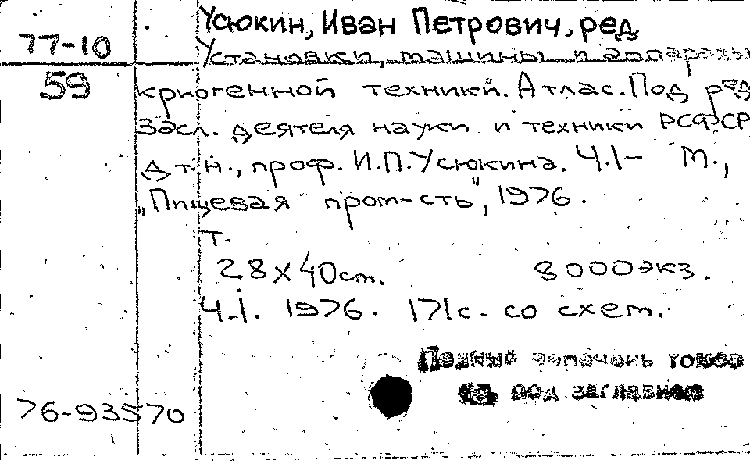 Усюкин, Иван Петрович, ред.
77-10
Установки, машины и аппараты
59
криогенной техники. Атлас. Под ред.
засл. деятеля науки и техники РСФСР
д.т.н., проф. И.П. Усюкина. Ч.1- М.,
"Пищевая пром-сть", 1976.
т.
28х40cm. 8000экз.
Ч.1. 1976. 171с. со схем.
перечень томов
под заглавием
76-93570